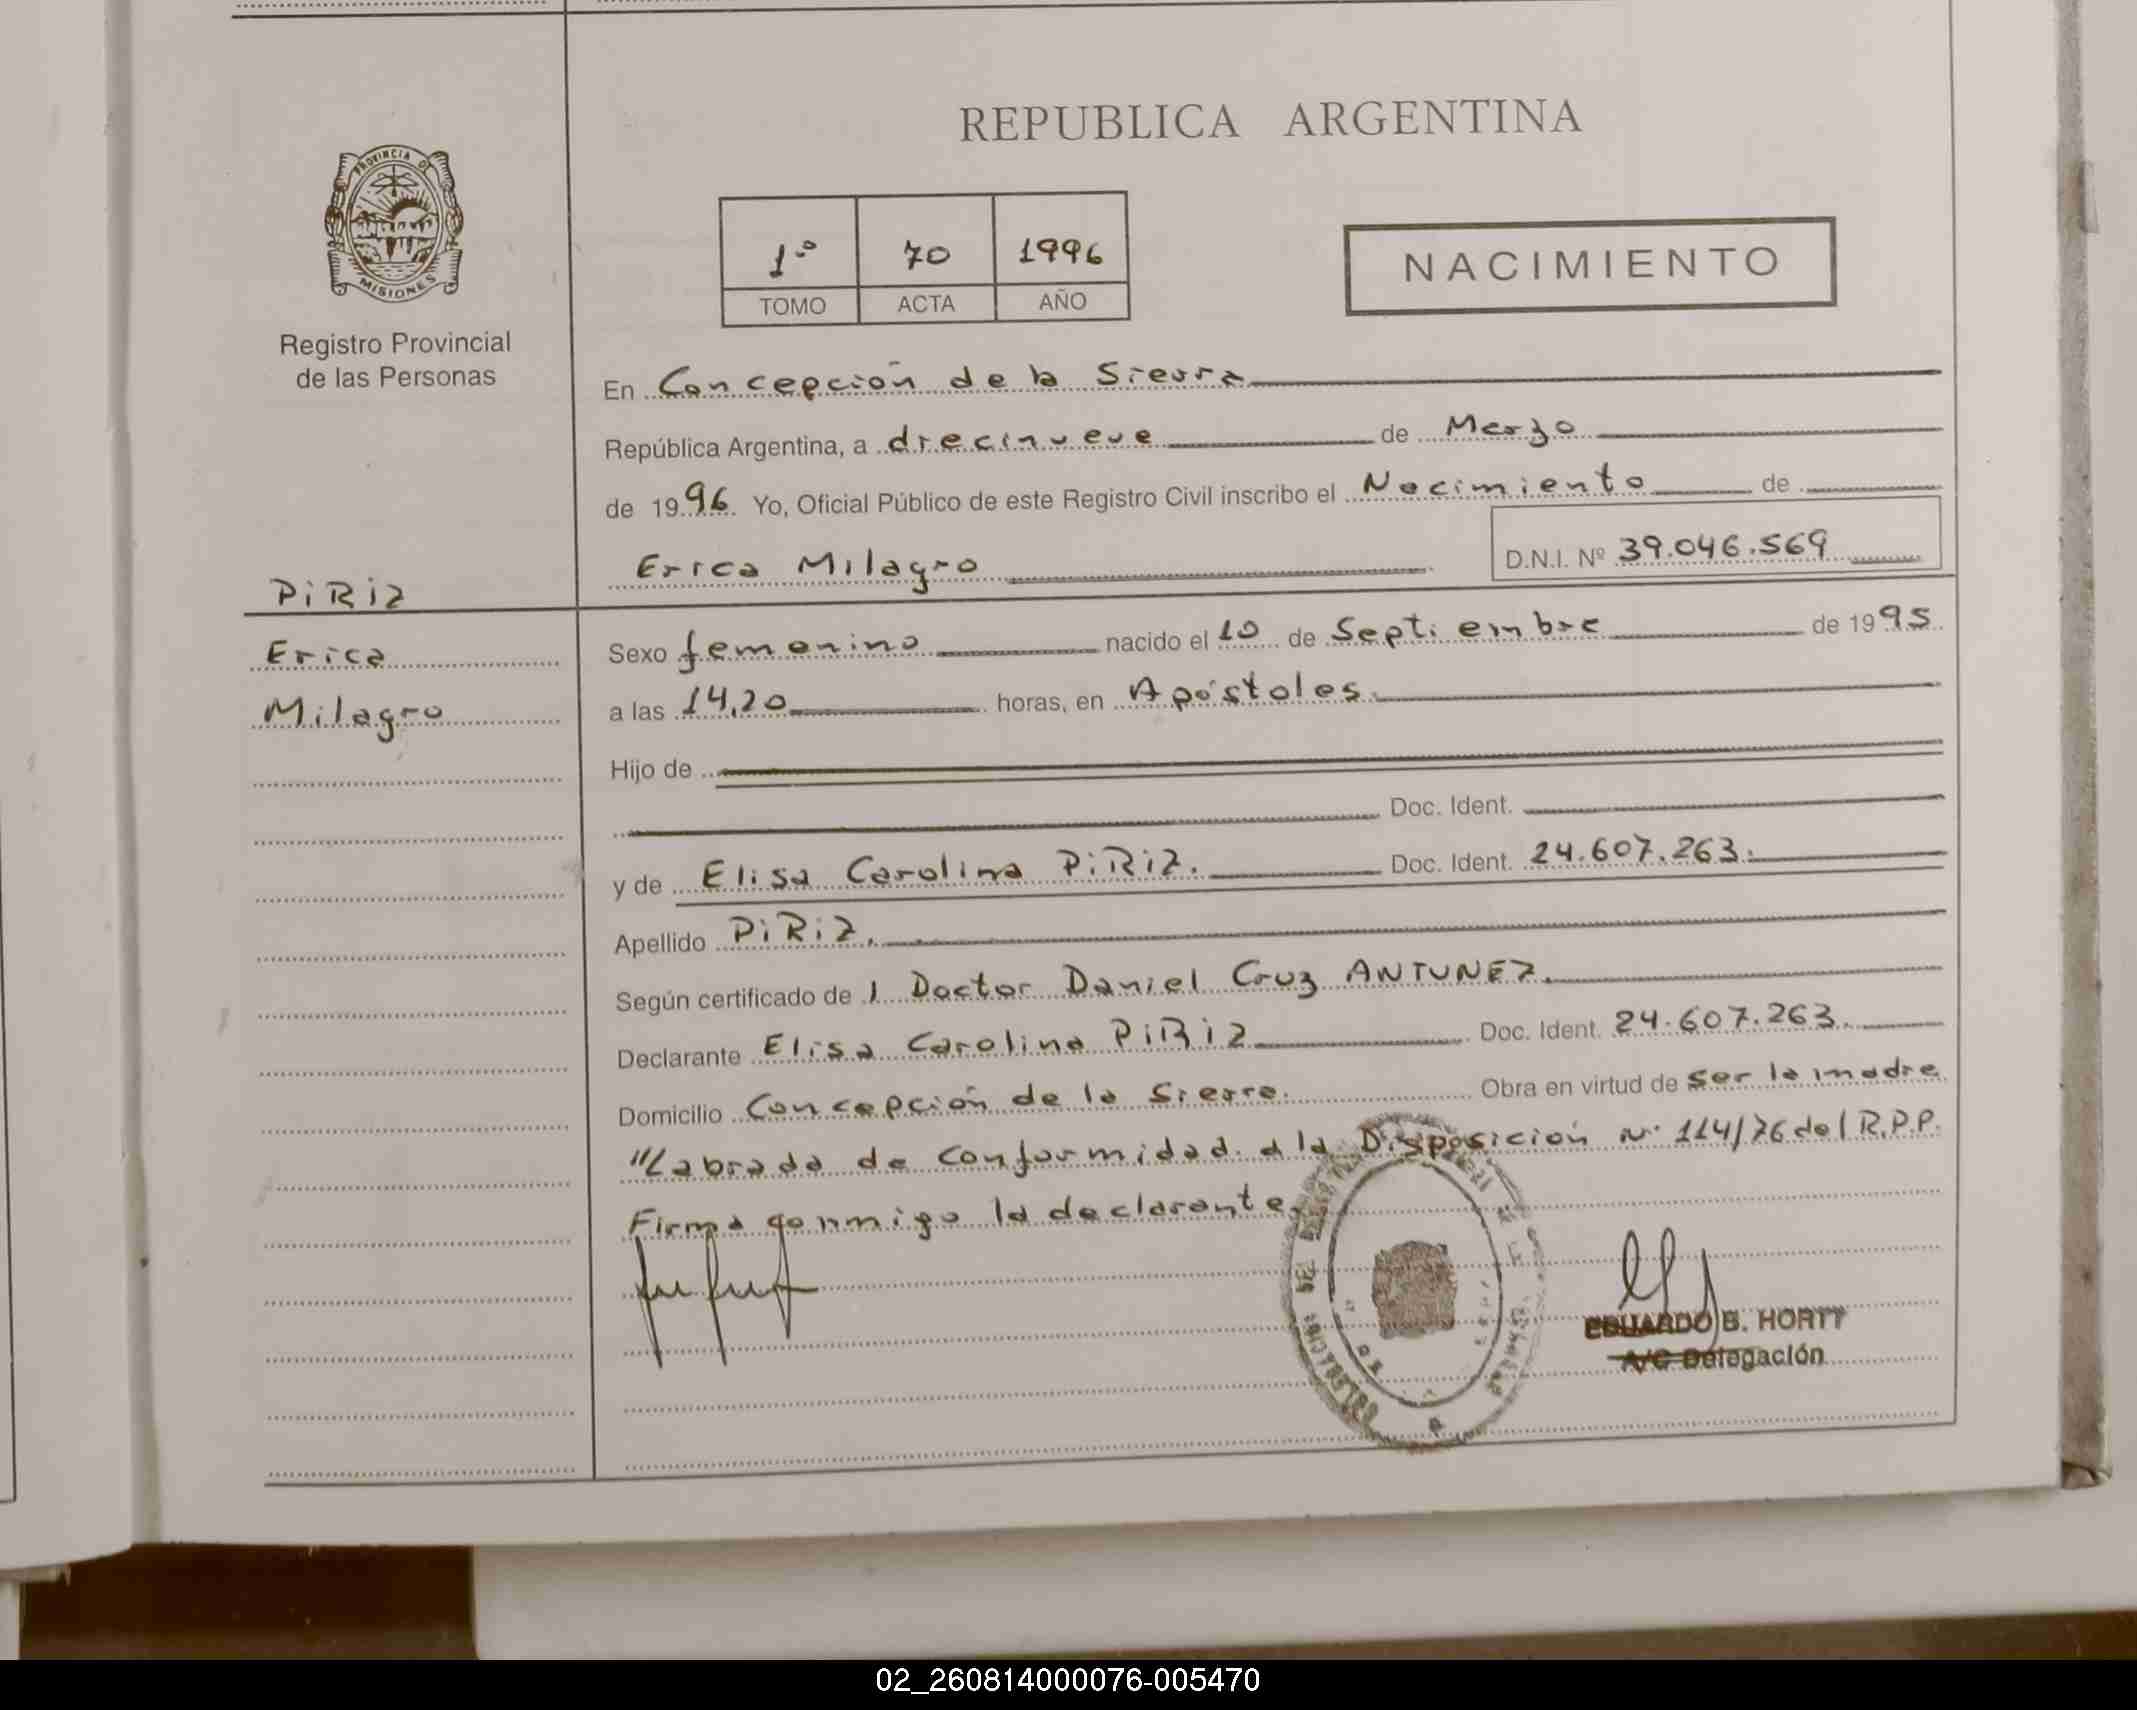 REPUBLICA ARGENTINA
PROVINCIA DE
MISIONES
Registro Provincial
de las Personas
1º 70 1996
TOMO ACTA AÑO
NACIMIENTO
En Concepción de la Sierra
República Argentina, a diecinueve de Marzo
de 1996 Yo, Oficial Público de este Registro Civil inscribo el Nacimiento de
Erica Milagro D.N.I. Nº 39.046.569
PiRiz
Erica
Milagro
Sexo femenino nacido el 10 de Septiembre de 1995
a las 14,20 horas, en Apóstoles.
Hijo de
Doc. Ident.
y de Elisa Carolina PiRiz. Doc. Ident. 24.607.263.
Apellido PiRiz.
Según certificado de l Doctor Daniel Cruz ANTUNEZ.
Declarante Elisa Carolina PiRiz Doc. Ident. 24.607.263.
Domicilio Concepción de la Sierra. Obra en virtud de ser la madre
"Labrada de Conformidad a la Disposición Nº 114/76 del R.P.P.
Firma conmigo la declarante.
EDUARDO B. HORTT
A/C Delegación
02_260814000076-005470